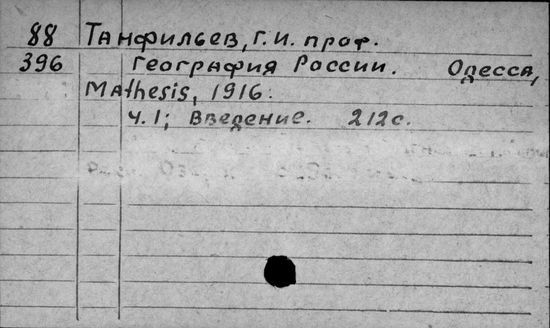 88 Танфильев, Г. И. проф.
396 География России. Одесса,
Mathesis, 1916.
Ч. 1; Введение. 212 с.